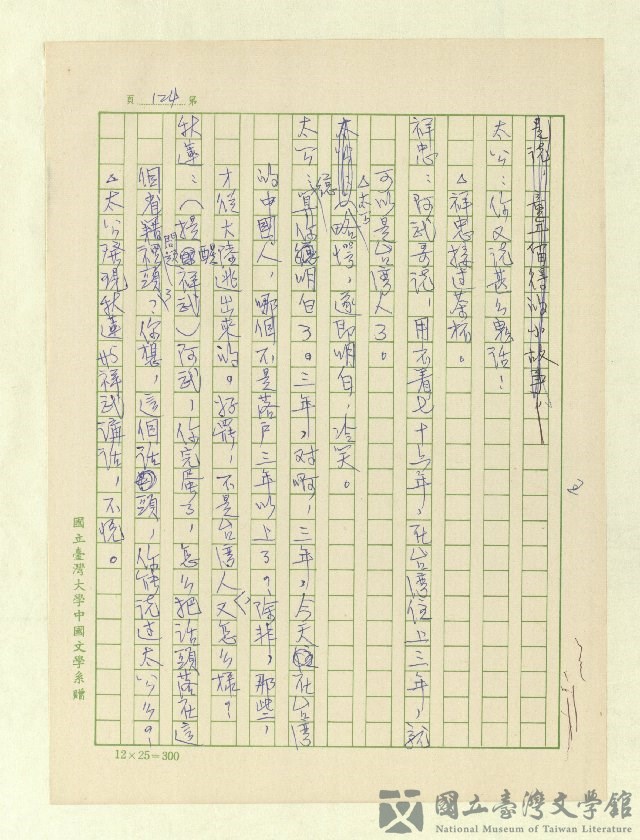 第 124 頁
是說，童年值得的小故事。
太公：你又說甚么鬼話！
△祥忠接过茶杯。
祥忠：阿武哥说，用不着七十六年，在台湾住上三年，就
可以是台湾人了。
△太公略愕，遂即明白，冷笑。
太公：算你德明白了。三年，对啊，三年，今天在台湾
的中國人，哪個不是落户三年以上了？除非，那些，
才從大陸逃出來的。好罷，不是台湾人又怎么樣？
秋蓮：（提醒祥武）阿武，你完蛋了，怎么把話頭落在這
個省籍問題头？你想，這個話頭，你能说过太公么？
△太公發現秋蓮與祥武講話，不悅。
國立臺灣大學中國文學系贈
12×25=300
國立臺灣文學館
National Museum of Taiwan Literature